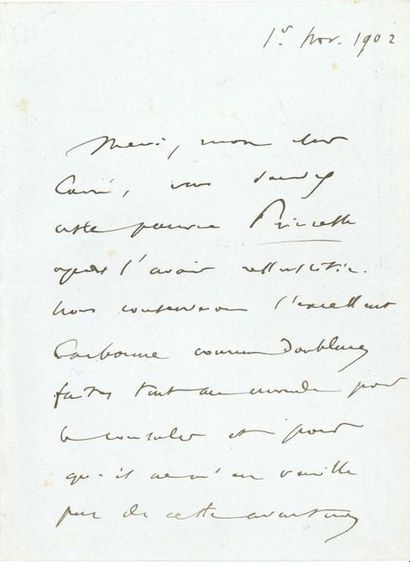 1er Nov. 1902
Merci, mon cher
Carré, vous sauvez
cette pauvre Princesse
après l'avoir ressuscitée.
Nous conserverons l'excellent
Carbonne comme doublure
faites tout au monde pour
le consoler et pour
qu'il ne m'en veuille
pas de cette aventure